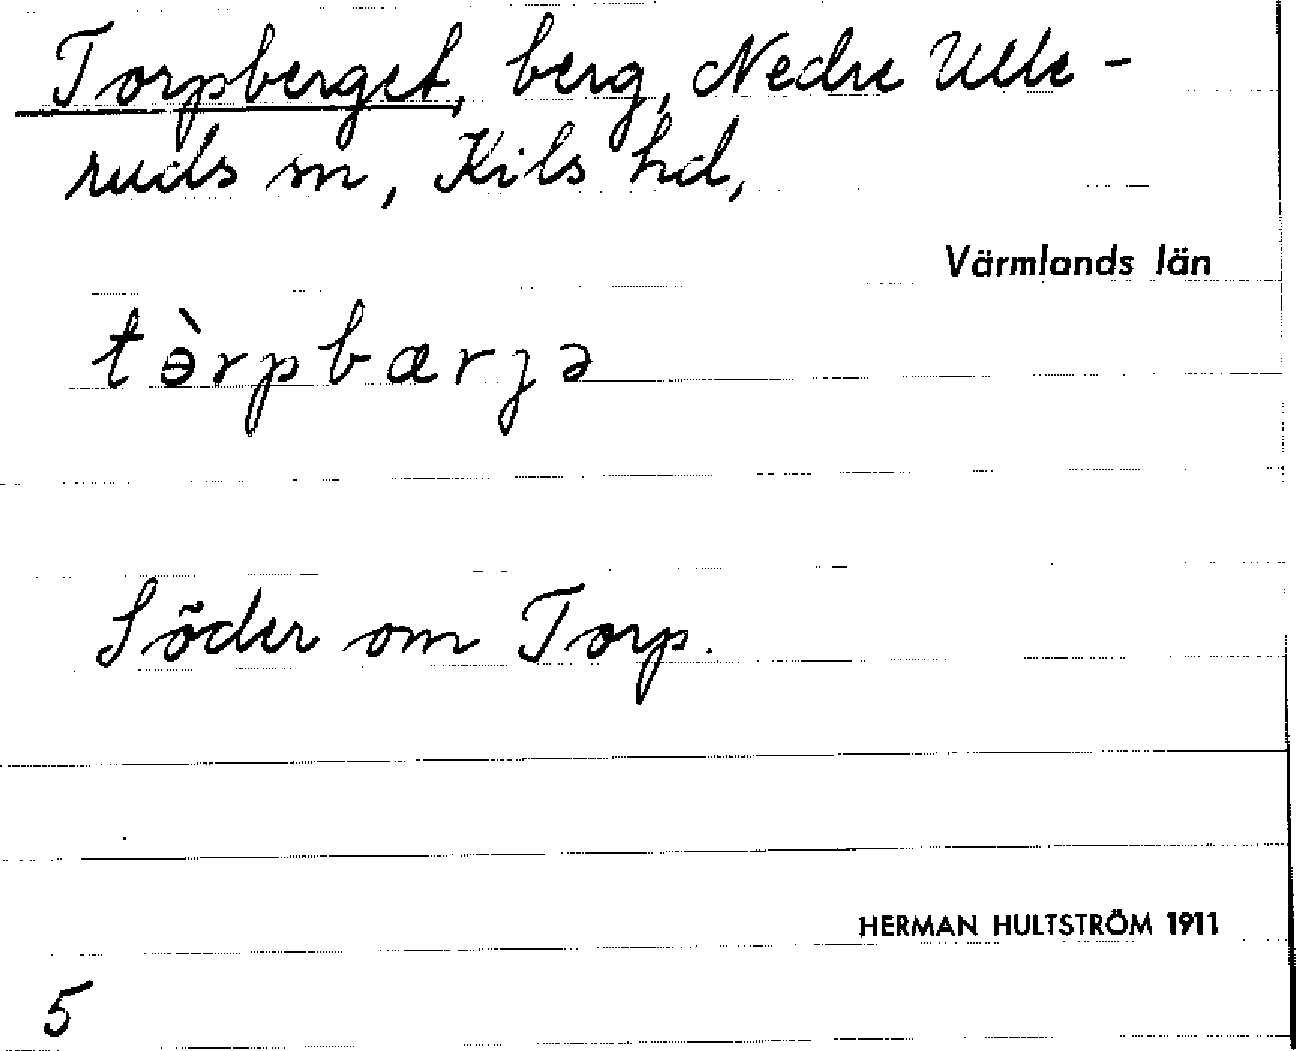 Torpberget, berg, Nedre Ulle-
ruds sn, Kils hd,
Värmlands län
tə̀rpbærȷə
Söder om Torp.
HERMAN HULTSTRÖM 1911
5